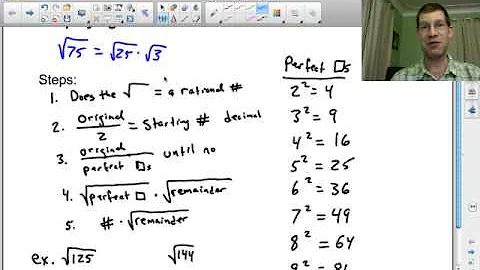 √75 = √25 · √3
Steps:
1. Does the √ = a rational #
2. original/2 = starting # decimal
3. original/perfect □s until no
4. √perfect □ · √remainder
5. # · √remainder
ex. √125 √144
Perfect □s
2² = 4
3² = 9
4² = 16
5² = 25
6² = 36
7² = 49
8² = 64